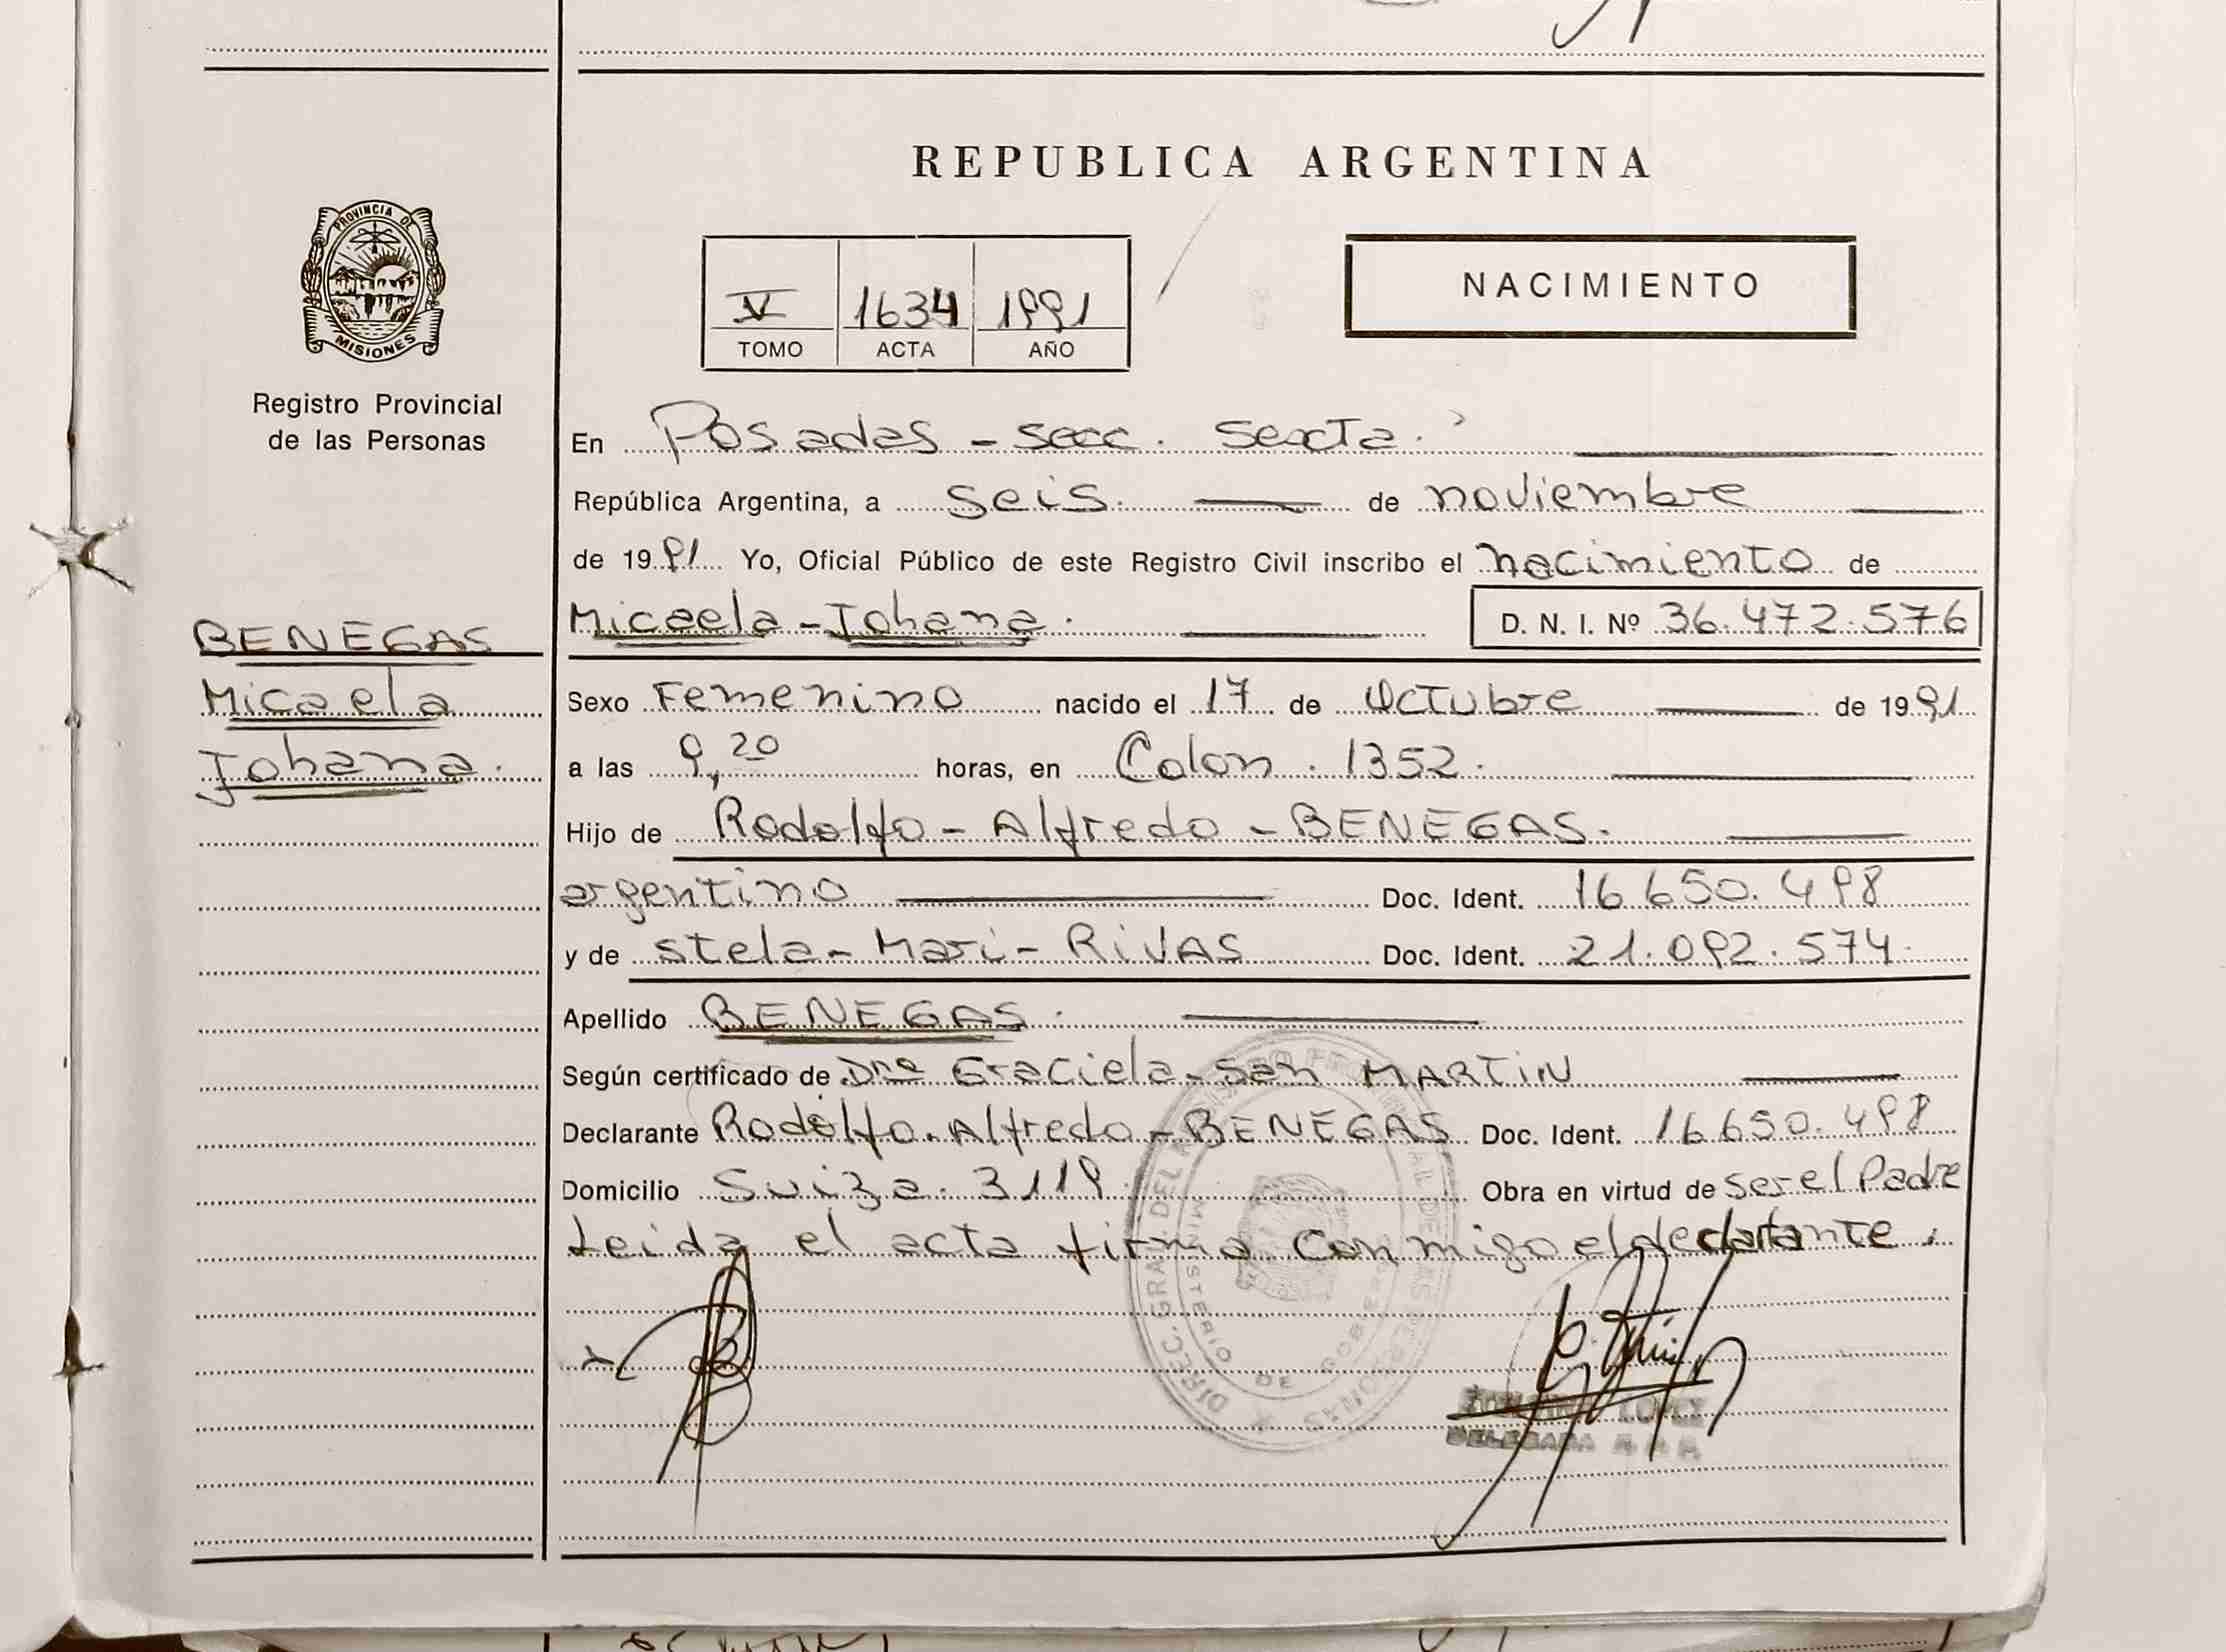 REPUBLICA ARGENTINA
PROVINCIA DE
MISIONES
Registro Provincial
de las Personas
NACIMIENTO
V 1634 1991
TOMO ACTA AÑO
En Posadas - secc. Sexta.
República Argentina, a seis. de noviembre
de 1991 Yo, Oficial Público de este Registro Civil inscribo el nacimiento de
Micaela - Johana. D. N. I. Nº 36.472.576
BENEGAS
Micaela
Johana.
Sexo Femenino nacido el 17 de Octubre de 1991
a las 9,20 horas, en Colon. 1352.
Hijo de Rodolfo - Alfredo - BENEGAS.
argentino Doc. Ident. 16.650.498
y de Stela - Mari - RIVAS Doc. Ident. 21.092.574.
Apellido BENEGAS.
Según certificado de Dra Graciela - San MARTIN
Declarante Rodolfo. Alfredo - BENEGAS Doc. Ident. 16.650.498
Domicilio Suiza. 3119 Obra en virtud de ser el Padre
Leida el acta firma conmigo el declarante.
DIREC. GRAL. DEL REGISTRO PROVINCIAL DE LAS PERSONAS
MINISTERIO DE GOBIERNO
LOPEZ
DELEGADA R. P. P.